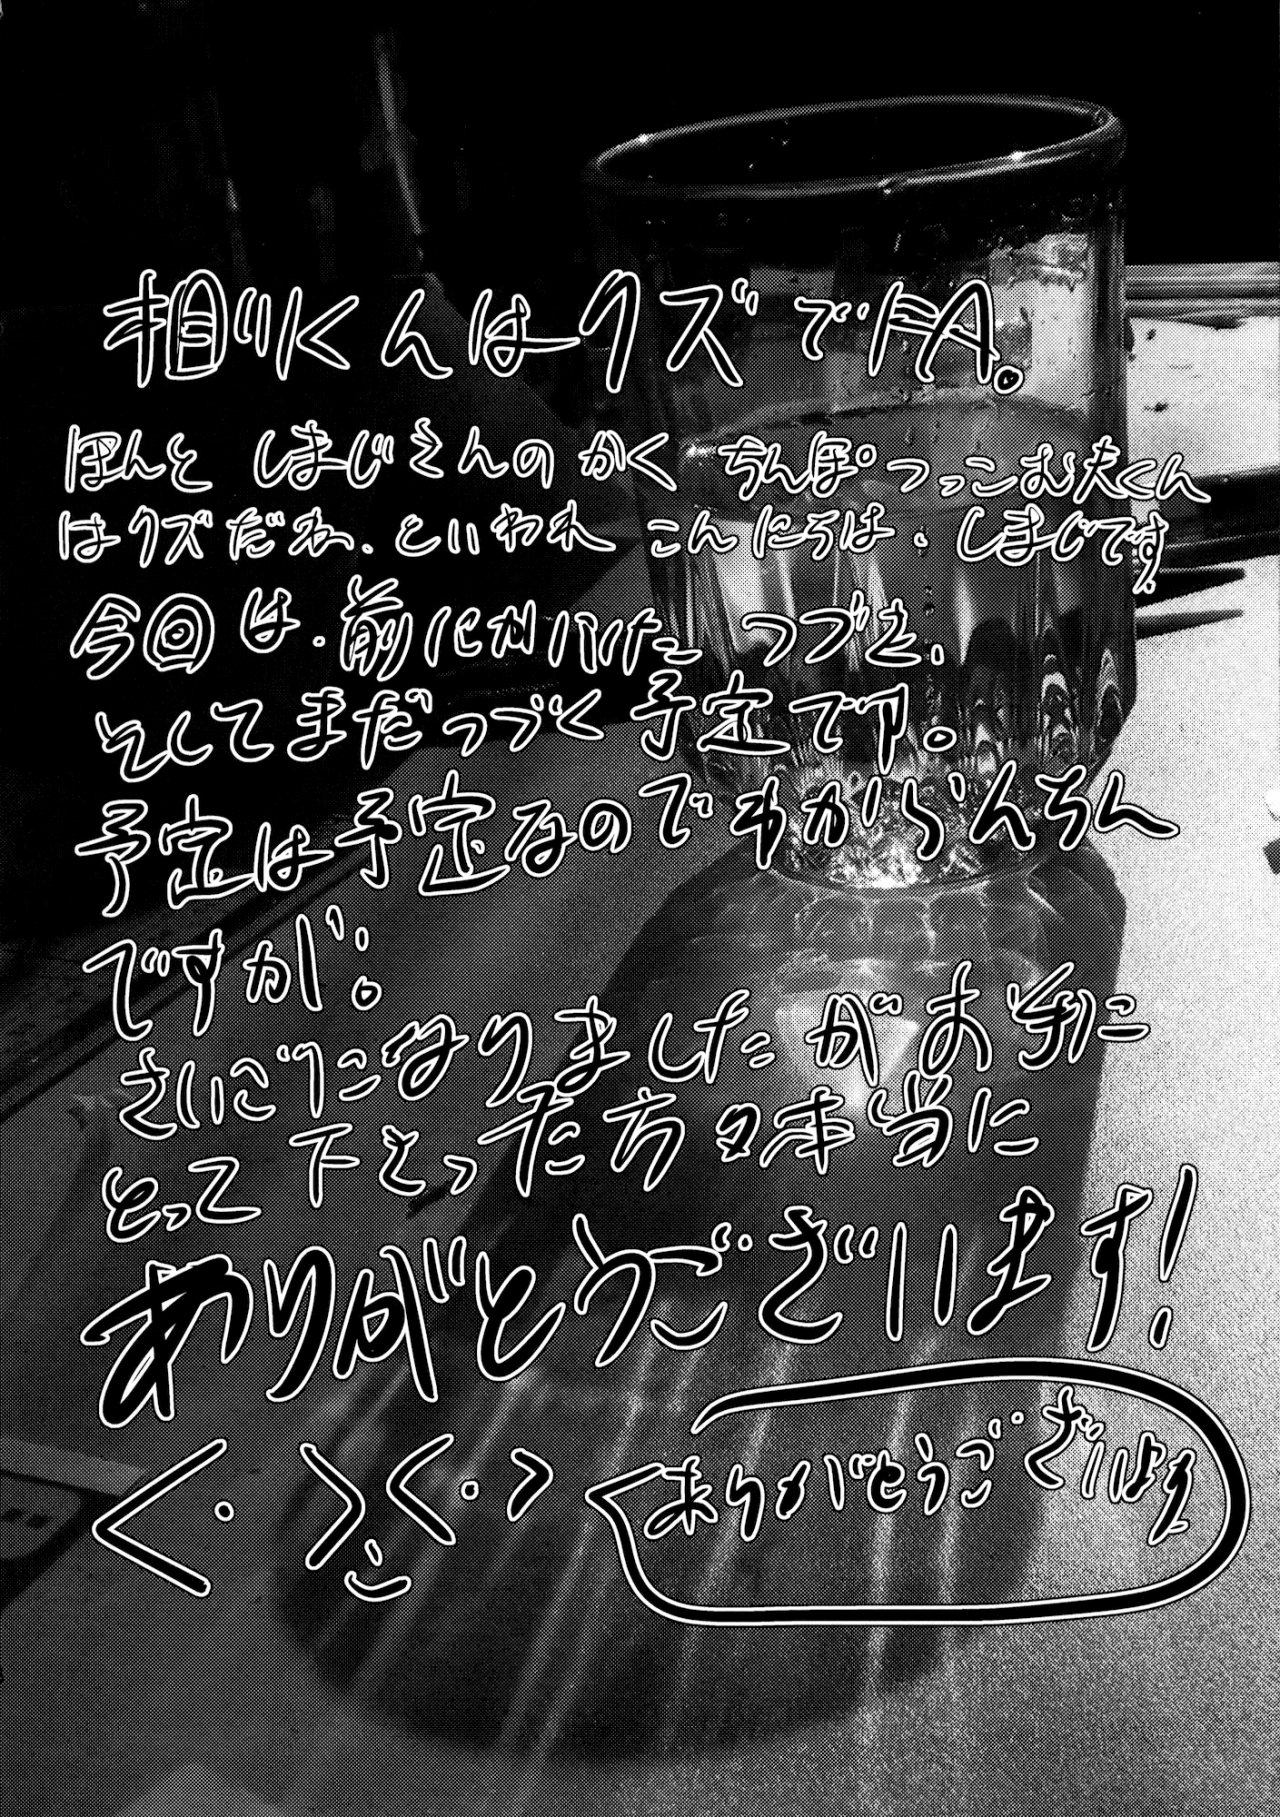 相川くんはクズでFA。
ほんと しまじさんのかく ちんぽつっこむ夫くん
はクズだね、といわれ こんにちは、しまじです。
今回は、前にかいた つづき、
そしてまだつづく予定です。
予定は予定なのでわからんちん
ですが!。
さいごになりましたがお手に
とって下さった方々本当に
ありがとうございます!
ありがとうございます